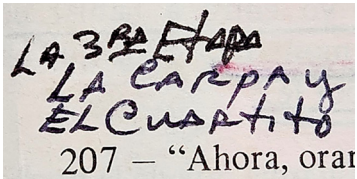 LA 3RA Etapa
LA CARPA y
EL CUARTITO
207 – “Ahora, orar